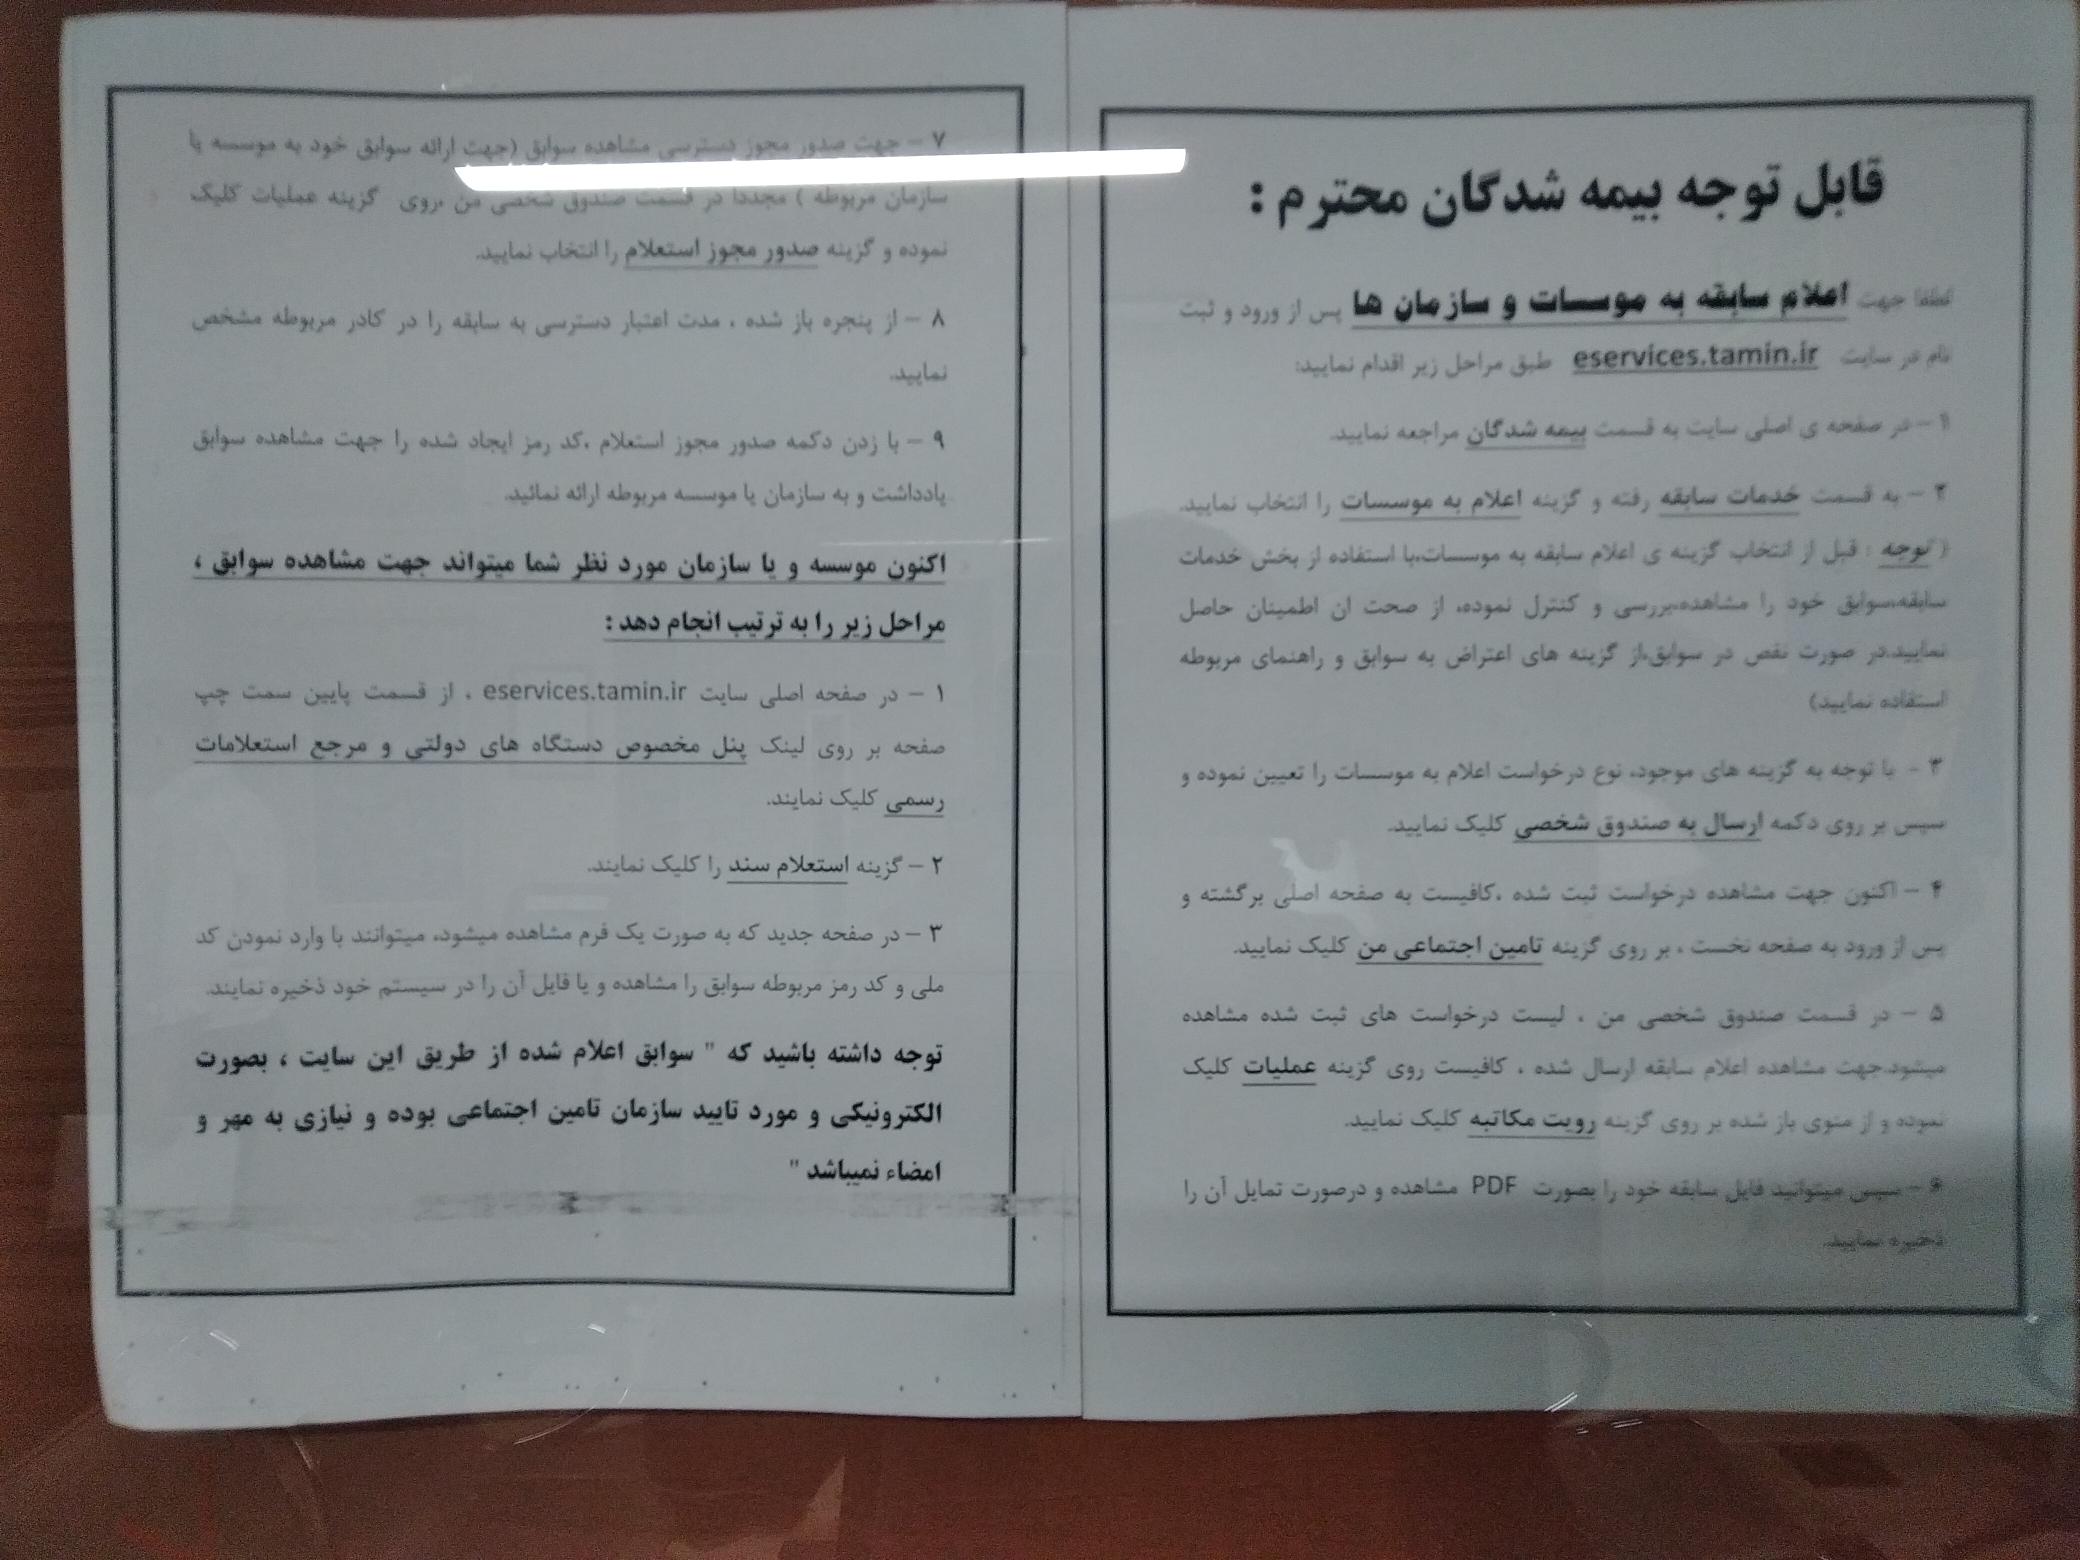 قابل توجه بیمه شدگان محترم :
لطفا جهت اعلام سابقه به موسسات و سازمان ها پس از ورود و ثبت
نام در سایت eservices.tamin.ir طبق مراحل زیر اقدام نمایید:
۱ – در صفحه ی اصلی سایت به قسمت بیمه شدگان مراجعه نمایید.
۲ – به قسمت خدمات سابقه رفته و گزینه اعلام به موسسات را انتخاب نمایید.
( توجه : قبل از انتخاب گزینه ی اعلام سابقه به موسسات،با استفاده از بخش خدمات
سابقه،سوابق خود را مشاهده،بررسی و کنترل نموده، از صحت ان اطمینان حاصل
نمایید.در صورت نقص در سوابق،از گزینه های اعتراض به سوابق و راهنمای مربوطه
استفاده نمایید)
۳ - با توجه به گزینه های موجود، نوع درخواست اعلام به موسسات را تعیین نموده و
سپس بر روی دکمه ارسال به صندوق شخصی کلیک نمایید.
۴ – اکنون جهت مشاهده درخواست ثبت شده ،کافیست به صفحه اصلی برگشته و
پس از ورود به صفحه نخست ، بر روی گزینه تامین اجتماعی من کلیک نمایید.
۵ – در قسمت صندوق شخصی من ، لیست درخواست های ثبت شده مشاهده
میشود.جهت مشاهده اعلام سابقه ارسال شده ، کافیست روی گزینه عملیات کلیک
نموده و از منوی باز شده بر روی گزینه رویت مکاتبه کلیک نمایید.
۶ – سپس میتوانید فایل سابقه خود را بصورت PDF مشاهده و درصورت تمایل آن را
ذخیره نمایید.
۷ – جهت صدور مجوز دسترسی مشاهده سوابق (جهت ارائه سوابق خود به موسسه یا
سازمان مربوطه ) مجددا در قسمت صندوق شخصی من ،روی گزینه عملیات کلیک
نموده و گزینه صدور مجوز استعلام را انتخاب نمایید.
۸ – از پنجره باز شده ، مدت اعتبار دسترسی به سابقه را در کادر مربوطه مشخص
نمایید.
۹ – با زدن دکمه صدور مجوز استعلام ،کد رمز ایجاد شده را جهت مشاهده سوابق
یادداشت و به سازمان یا موسسه مربوطه ارائه نمائید.
اکنون موسسه و یا سازمان مورد نظر شما میتواند جهت مشاهده سوابق ،
مراحل زیر را به ترتیب انجام دهد :
۱ – در صفحه اصلی سایت eservices.tamin.ir ، از قسمت پایین سمت چپ
صفحه بر روی لینک پنل مخصوص دستگاه های دولتی و مرجع استعلامات
رسمی کلیک نمایند.
۲ – گزینه استعلام سند را کلیک نمایند.
۳ – در صفحه جدید که به صورت یک فرم مشاهده میشود، میتوانند با وارد نمودن کد
ملی و کد رمز مربوطه سوابق را مشاهده و یا فایل آن را در سیستم خود ذخیره نمایند.
توجه داشته باشید که " سوابق اعلام شده از طریق این سایت ، بصورت
الکترونیکی و مورد تایید سازمان تامین اجتماعی بوده و نیازی به مهر و
امضاء نمیباشد "